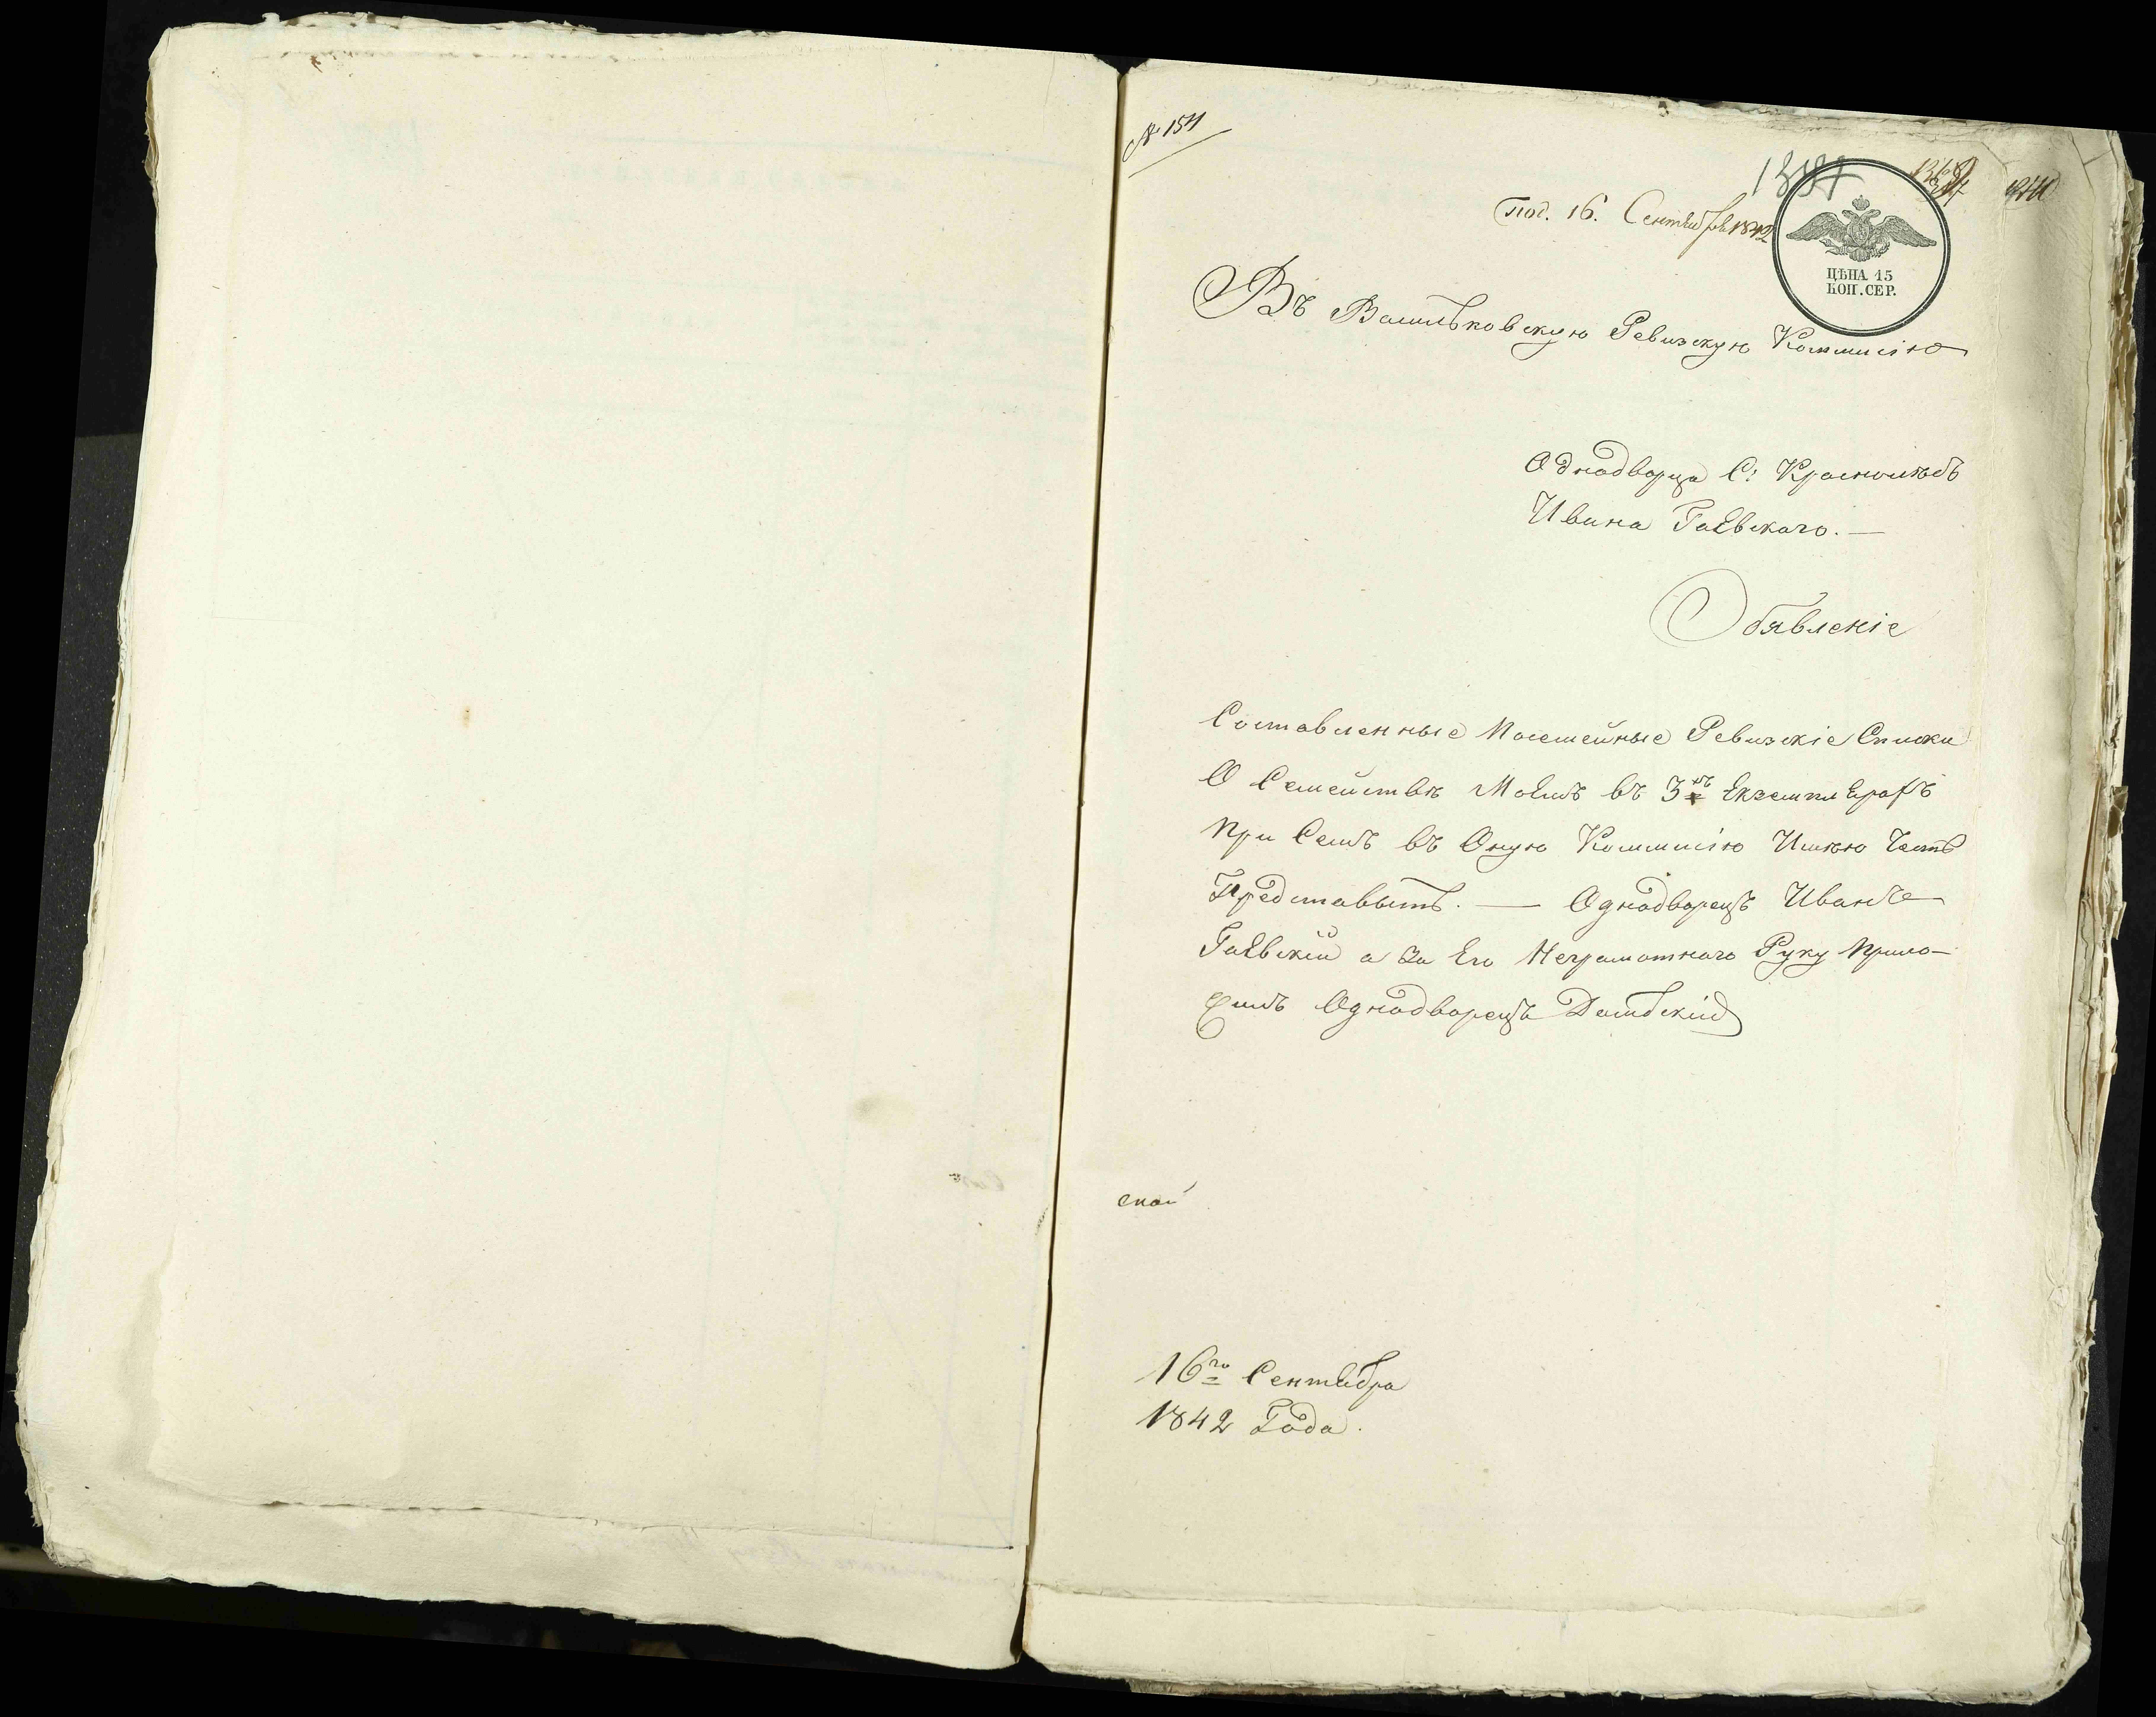 № 154
под. 16. Сентября 1842
ЦѢНА 15
КОП. СЕР.
Въ Васильковскую Ревизскую Коммисію
Однодворца С: Краснолѣсъ
Ивана Гаевскаго. —
Обявленіе
Составленные Посемейные Ревизскіе Списки
О Семействѣ Моемъ въ 3хъ Екземплерахъ
При Семъ въ Оную Коммисію Имѣю Честь
Представыть. — Однодворецъ Иванъ
Гаевскій а За Его Неграмотнаго Руку Прило-
жилъ Однодворецъ Домбскій
ской
16го Сентебра
1842 Года.